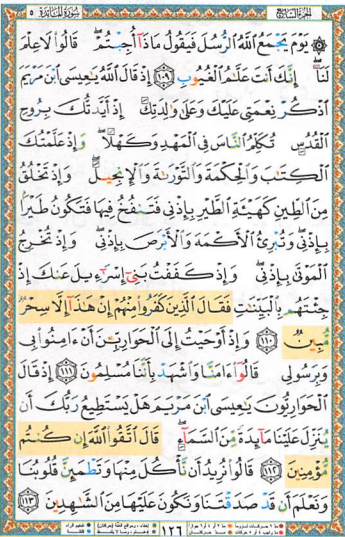 الجزء السابع سورة المائدة ٥
۞ يَوْمَ يَجْمَعُ اللَّهُ الرُّسُلَ فَيَقُولُ مَاذَا أُجِبْتُمْ ۖ قَالُوا لَا عِلْمَ
لَنَا ۖ إِنَّكَ أَنتَ عَلَّامُ الْغُيُوبِ ١٠٩ إِذْ قَالَ اللَّهُ يَا عِيسَى ابْنَ مَرْيَمَ
اذْكُرْ نِعْمَتِي عَلَيْكَ وَعَلَىٰ وَالِدَتِكَ إِذْ أَيَّدتُّكَ بِرُوحِ
الْقُدُسِ تُكَلِّمُ النَّاسَ فِي الْمَهْدِ وَكَهْلًا ۖ وَإِذْ عَلَّمْتُكَ
الْكِتَابَ وَالْحِكْمَةَ وَالتَّوْرَاةَ وَالْإِنجِيلَ ۖ وَإِذْ تَخْلُقُ
مِنَ الطِّينِ كَهَيْئَةِ الطَّيْرِ بِإِذْنِي فَتَنفُخُ فِيهَا فَتَكُونُ طَيْرًا
بِإِذْنِي ۖ وَتُبْرِئُ الْأَكْمَهَ وَالْأَبْرَصَ بِإِذْنِي ۖ وَإِذْ تُخْرِجُ
الْمَوْتَىٰ بِإِذْنِي ۖ وَإِذْ كَفَفْتُ بَنِي إِسْرَائِيلَ عَنكَ إِذْ
جِئْتَهُم بِالْبَيِّنَاتِ فَقَالَ الَّذِينَ كَفَرُوا مِنْهُمْ إِنْ هَٰذَا إِلَّا سِحْرٌ
مُّبِينٌ ١١٠ وَإِذْ أَوْحَيْتُ إِلَى الْحَوَارِيِّينَ أَنْ آمِنُوا بِي
وَبِرَسُولِي قَالُوا آمَنَّا وَاشْهَدْ بِأَنَّنَا مُسْلِمُونَ ١١١ إِذْ قَالَ
الْحَوَارِيُّونَ يَا عِيسَى ابْنَ مَرْيَمَ هَلْ يَسْتَطِيعُ رَبُّكَ أَن
يُنَزِّلَ عَلَيْنَا مَائِدَةً مِّنَ السَّمَاءِ ۖ قَالَ اتَّقُوا اللَّهَ إِن كُنتُم
مُّؤْمِنِينَ ١١٢ قَالُوا نُرِيدُ أَن نَّأْكُلَ مِنْهَا وَتَطْمَئِنَّ قُلُوبُنَا
وَنَعْلَمَ أَن قَدْ صَدَقْتَنَا وَنَكُونَ عَلَيْهَا مِنَ الشَّاهِدِينَ ١١٣
١٢٦